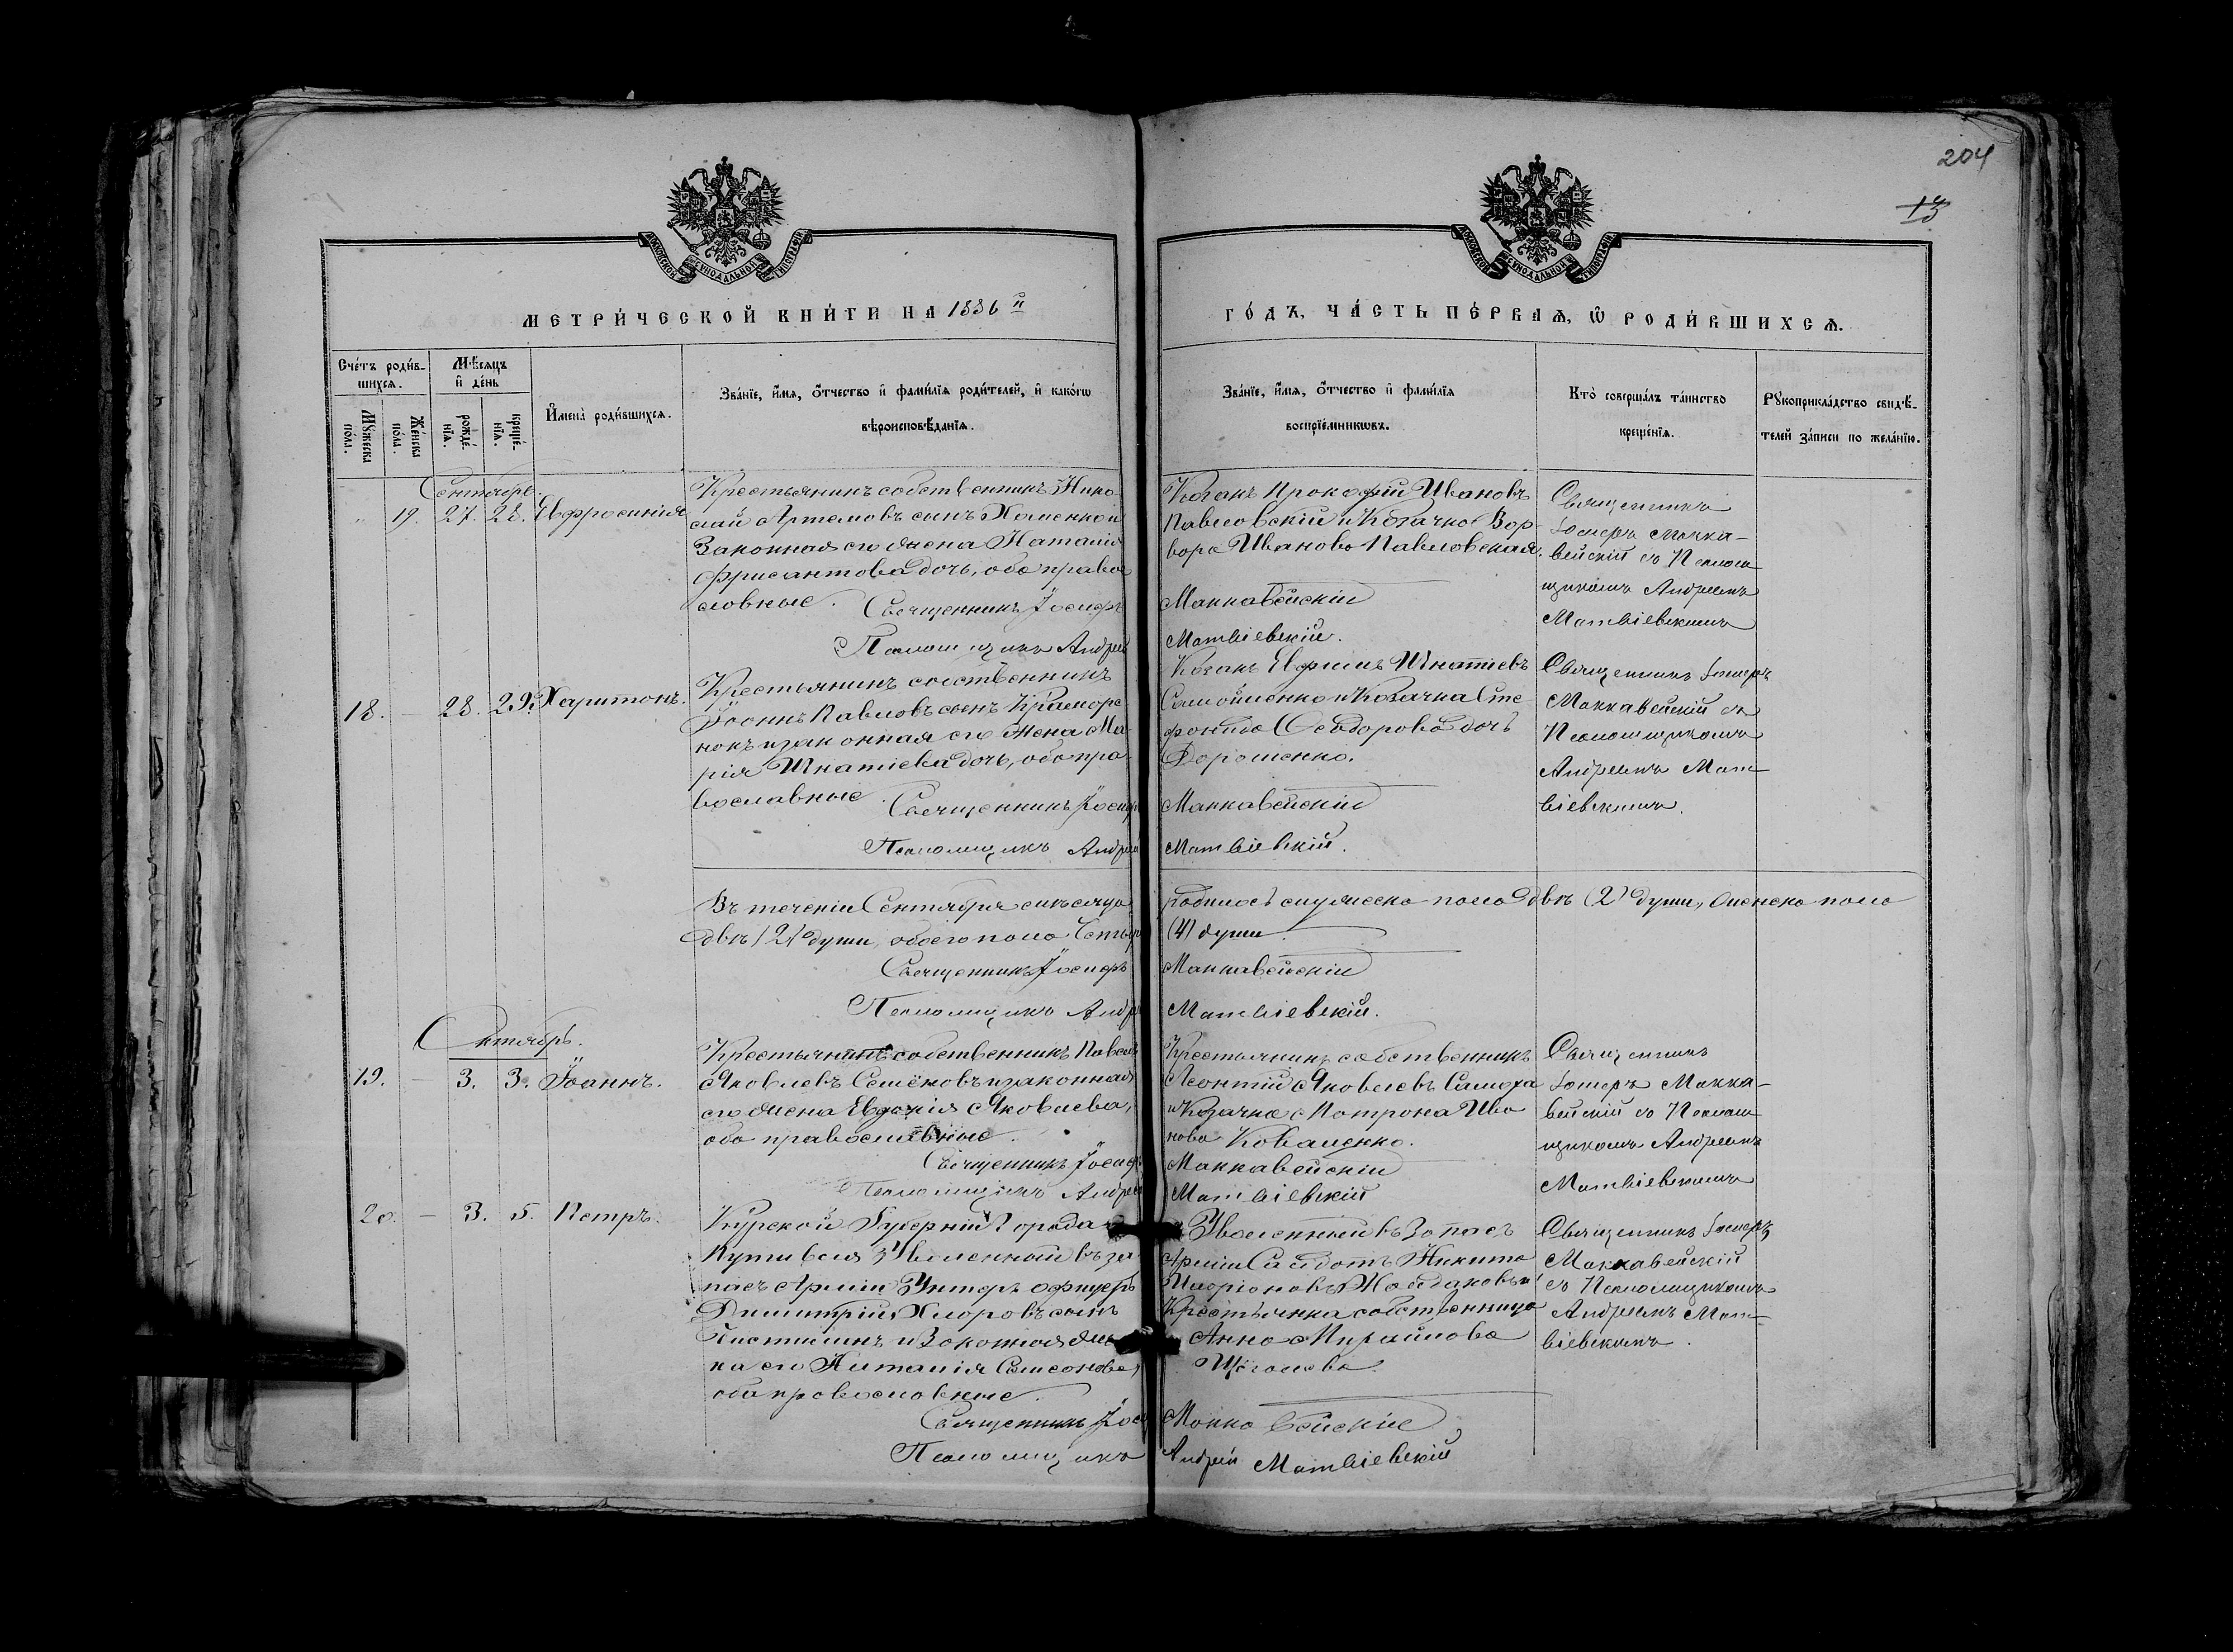 204
13
МОСКОВСКОЙ СѴНОДАЛЬНОЙ ТИПОГРАФІИ
МОСКОВСКОЙ СѴНОДАЛЬНОЙ ТИПОГРАФІИ
МЕТРИ́ЧЕСКОЙ КНИ́ГИ НА 1886 й
ГО́ДЪ, ЧА́СТЬ ПЕ́РВАѦ, Ѽ РОДИ́ВШИХСѦ.
Сче́тъ роди́в-
шихсѧ.
Мꙋ́жеска по́ла.
Же́нска по́ла.
Мѣ́сѧцъ и҆ де́нь
рожде́-нїѧ.
креще́-нїѧ.
И҆мена̀ роди́вшихсѧ.
Зва́нїе, и҆́мѧ, ѻ҆́тчество и҆ фами́лїѧ роди́телей, и҆ како́гѡ
вѣроисповѣ́данїѧ.
Зва́нїе, и҆́мѧ, ѻ҆́тчество и҆ фами́лїѧ
воспрїе́мникѡвъ.
Кто̀ соверша́лъ та́инство
креще́нїѧ.
Рꙋкоприкла́дство свидѣ́-
телей за́писи по жела́нїю.
Сентябрь.
" 19. 27. 28. Евфросинія
Крестьянинъ собственникъ Нико
лай Артемовъ сынъ Хоменко и
Законная его жена Наталія
Фрисантова дочь, оба правос
лавные.
Священникъ Іосифъ
Псаломщикъ Андрей
Козакъ Прокофій Ивановъ
Павловскій и Козачка Вар
вара Иванова Павловская.
Маккавейскій
Матвіевскій.
Священникъ
Іосифъ Макка-
вейскій съ Псалом
щикомъ Андреемъ
Матвіевскимъ
18. — 28. 29. Харитонъ.
Крестьянинъ собственникъ
Іоаннъ Павловъ сынъ
и законная его жена Ма
рія Игнатіева дочь, оба пра
вославные
Священникъ Іосифъ
Псаломщикъ Андрей
Козакъ Ефимъ Игнатіевъ
Самойленко и Козачка Сте
фанида Феодорова дочь
Дорошенко.
Маккавейскій
Матвіевскій.
Священникъ Іосифъ
Маккавейскій съ
Псаломщикомъ
Андреемъ Мат
віевскимъ.
Въ теченіи Сентября мѣсяца
родилось мужеска пола двѣ (2) души, женска пола
двѣ (2) души, обоего пола Четыре
(4) души.
Священникъ Іосифъ
Маккавейскій
Псаломщикъ Андрей
Матвіевскій.
Октябрь.
19. — 3. 3. Іоаннъ.
Крестьянинъ собственникъ Павелъ
Яковлевъ Семёновъ и законная
его жена Евдокія Яковлева,
оба православные.
Священникъ Іосифъ
Псаломщикъ Андрей
Крестьянинъ собственникъ
Леонтій Яковлевъ
и Козачка Матрона Ива
нова Коваленко.
Маккавейскій
Матвіевскій
Священникъ
Іосифъ Макка-
вейскій съ Псалом
щикомъ Андреемъ
Матвіевскимъ
20. — 3. 5. Петръ.
Курской Губерніи Города
Путивля Уволенный въ за
пасъ Арміи Унтеръ офицеръ
Димитрій сынъ
и Законная же
на его Наталія Самсонова,
оба православные.
Священникъ Іосифъ
Псаломщикъ
Уволенный въ Запасъ
Арміи Солдатъ Никита
Иларіоновъ и
Крестьянка собственница
Анна Михайлова
Щеголева
Маккавейскій
Андрей Матвіевскій
Священникъ Іосифъ
Маккавейскій
съ Псаломщикомъ
Андреемъ Мат-
віевскимъ.